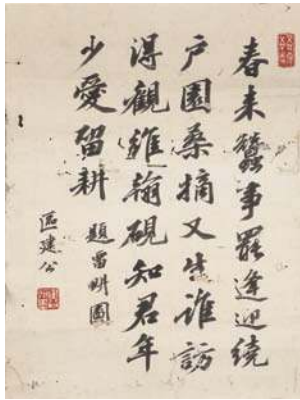 春来蠶事罷逢迎繞
户園桑摘又生誰訪
得觀雖翰硯知君年
少愛留耕
題留畊圖
區建公